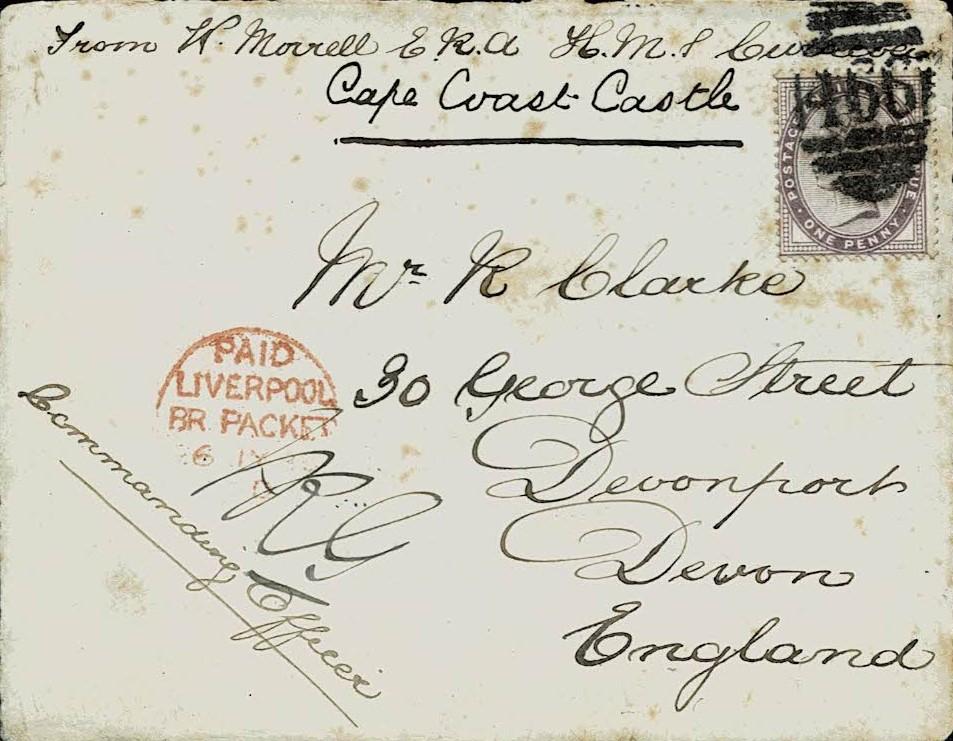 From W. Morrell E R A H.M.S
Cape Coast Castle
466
POSTAGE
ONE PENNY
Mr R Clarke
30 George Street
Devonport
Devon
England
PAID
LIVERPOOL
BR PACKET
6
Commanding Officer